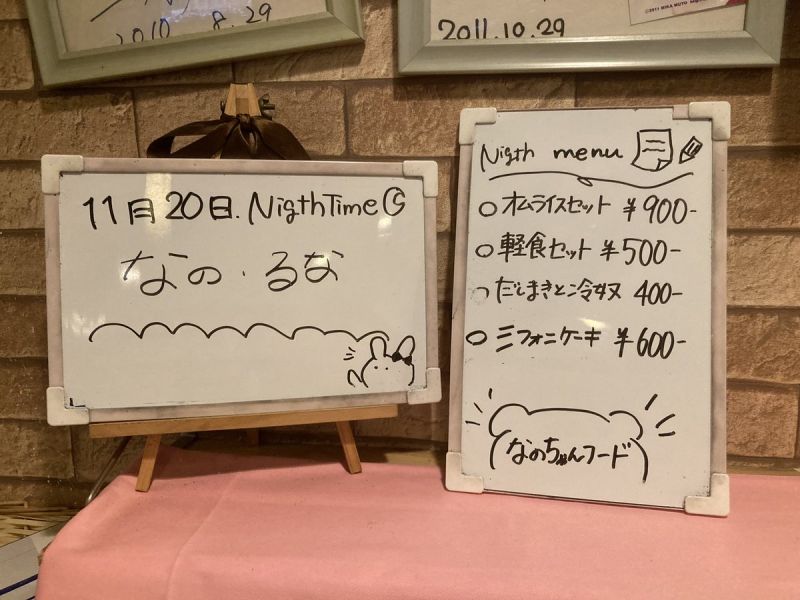 2010 8.29
2011.10.29
11月20日. NigthTime
なの・るな
Nigth menu
○オムライスセット ¥900-
○軽食セット ¥500-
○だしまきと冷奴 400-
○ミフォニケーキ ¥600-
なのちゃんフード